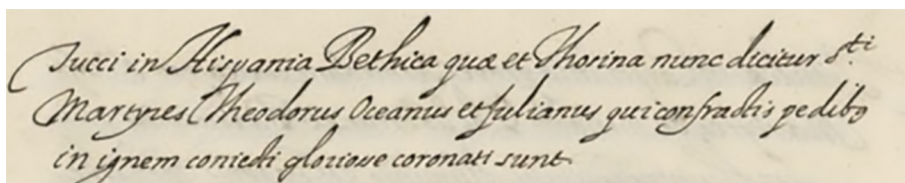 Tucci in Hispania Bethica quæ et Thorina nunc dicitur S.ti
Martyres Theodorus Oceanus et Julianus qui confractis pedibꝰ
in ignem coniecti gloriose coronati sunt